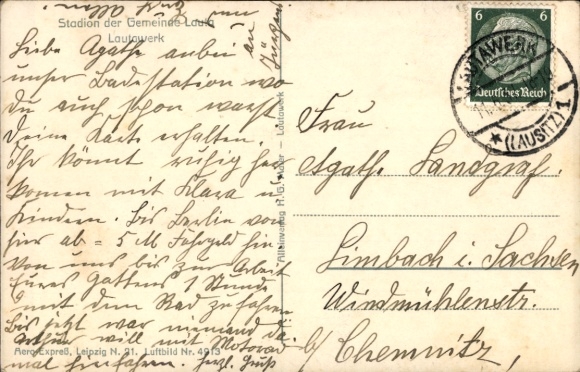 Stadion der Gemeinde Lauta
Lautawerk
Liebe Agathe anbei
unser Badestation wo
Du auch schon warst
Deine Karte erhalten.
Ihr könnt ruhig her
komen mit Klara u.
Kindern. Bis Berlin von
hier ab = 5 M Fahrgeld hin
von uns bis zur Arbeit
Eures Gattens 1 Stunde
mit dem Rad zu fahren
Bis jetzt war niemand da.
Arthur will mit Motorrad
mal hinfahren. herzl. Gruß
Aero-Expreß, Leipzig N. 21. Luftbild Nr. 4913
Alleinverlag H. G. - Lautawerk
6 6
Deutsches Reich
LAUTAWERK
★ (LAUSITZ) 1
Frau
Agathe Landgraf.
Limbach i. Sachsen
Windmühlenstr.
b/ Chemnitz,